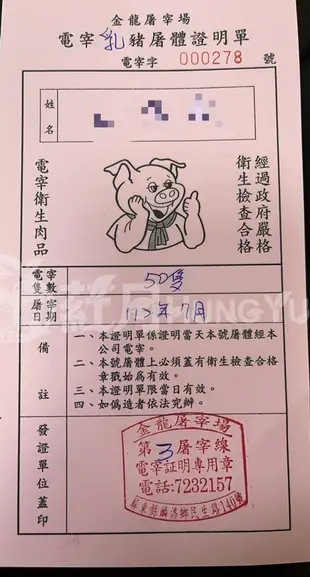 金龍屠宰場
電宰乳豬屠體證明單
電宰字 000278 號
姓名
電宰衛生肉品
經過政府嚴格
衛生檢查合格
電宰隻數
50隻
屠宰日期
年7月
備註
一、本證明單係證明當天本號屠體經本公司電宰。
二、本號屠體上必須蓋有衛生檢查合格章戳始為有效。
三、本證明單限當日有效。
四、如偽造者依法究辦。
發證單位蓋印
金龍屠宰場
第3屠宰線
電宰証明專用章
電話:7232157
屏東縣麟洛鄉民生路140號